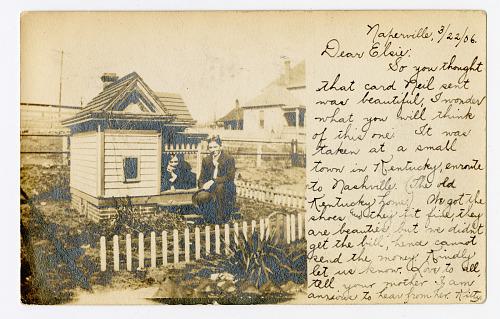 Naperville, 3/22/06.
Dear Elsie:
So you thought
that card Neil sent
was beautiful, I wonder
what you will think
of this one. It was
taken at a small
town in Kentucky, enroute
to Nashville. (The old
Kentucky home) We got the
shoes & they fit fine, they
are beauties but we didn't
get the bill, hence cannot
send the money. Kindly
let us know. Love to all,
tell your mother I am
anxious to hear from her. Kitty